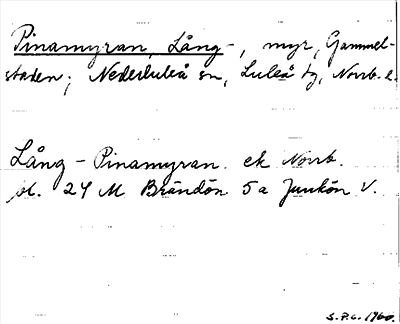 Pinamyran, Lång-, myr, Gammel-
staden; Nederluleå sn, Luleå tg, Norrb. l.
Lång-Pinamyran ek Norrb.
bl. 24 M Brändön 5a Junkön V.
S.P.G. 1960.